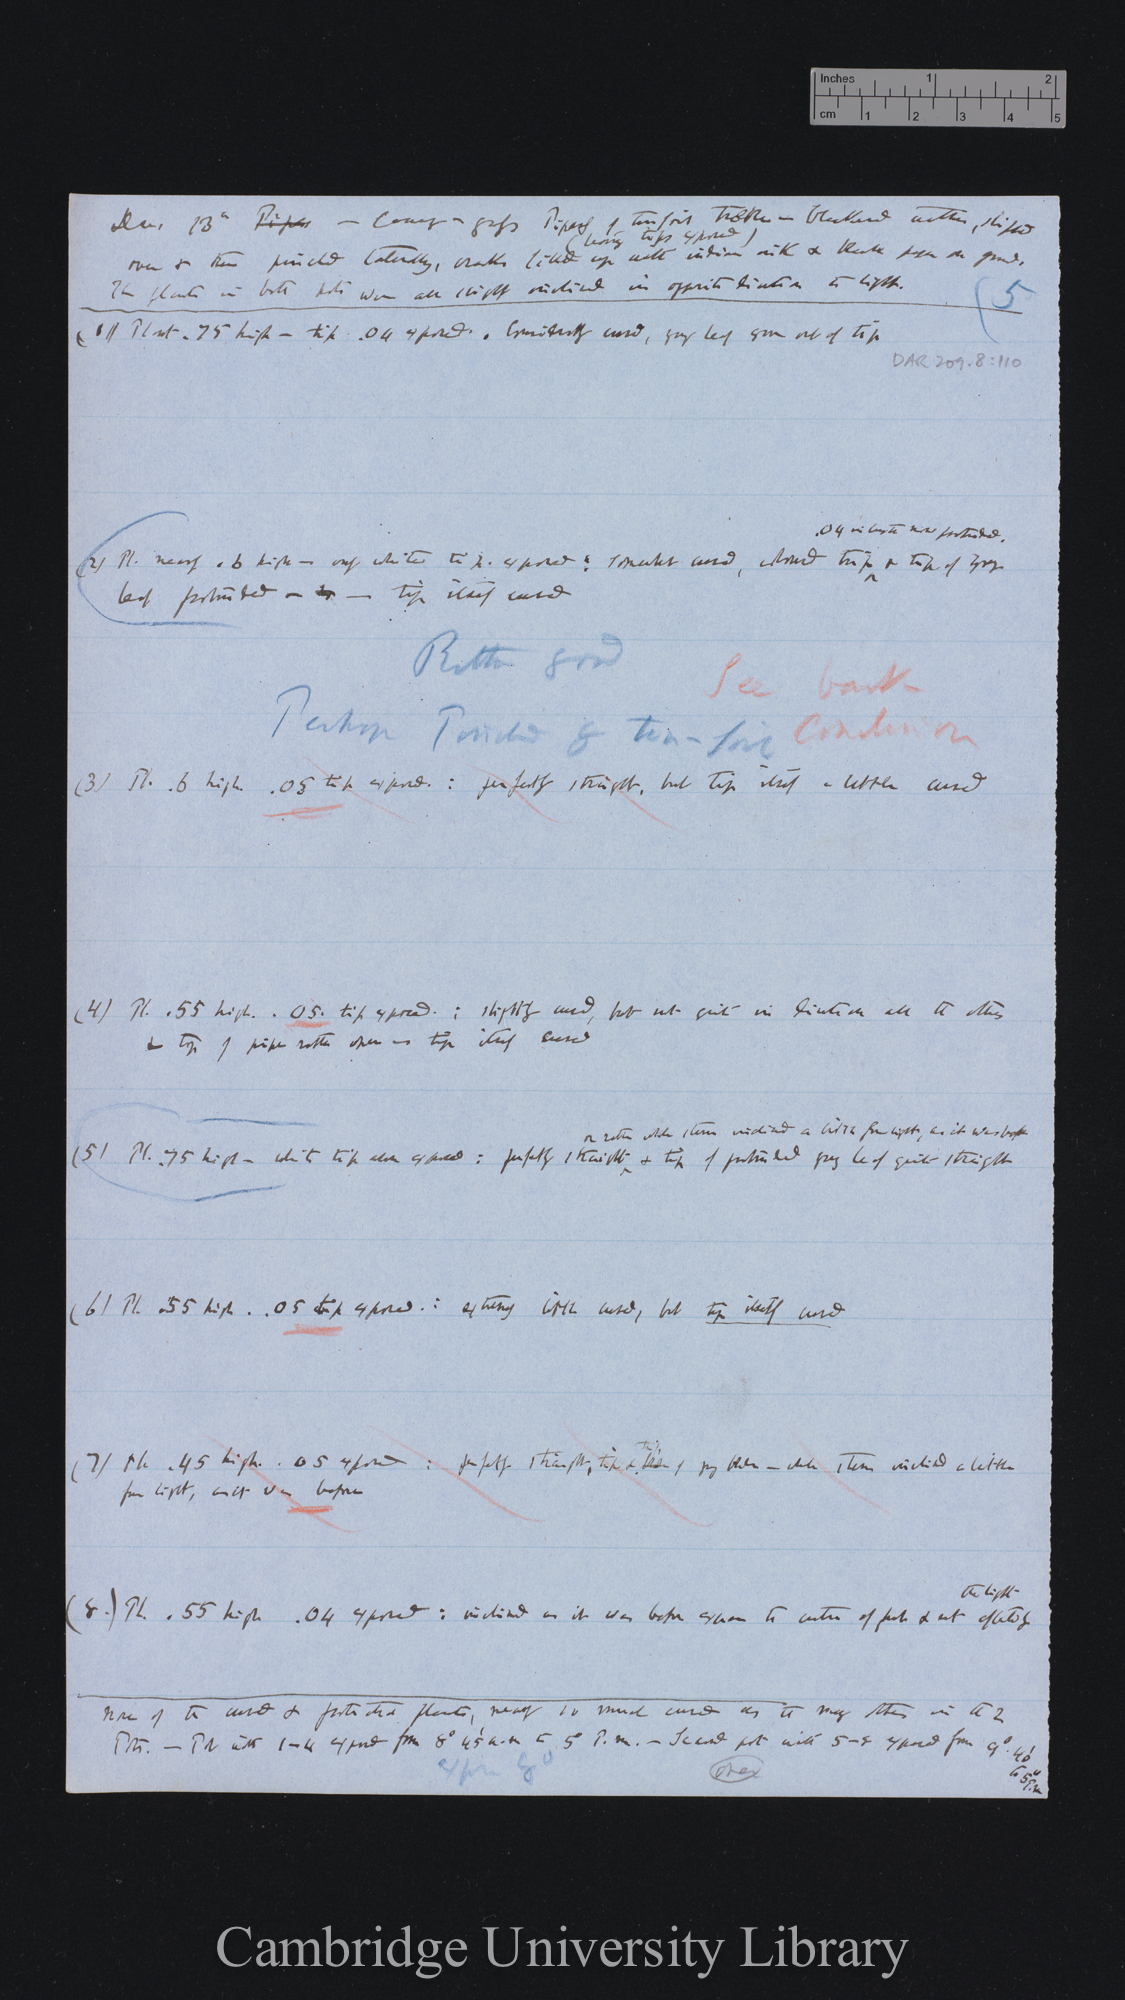 Inches 1 2
cm 1 2 3 4 5
Dec. 13th Pipes — Canary-grass Pipes of tin-foil thicker — blackened within, slipped
(leaving tips exposed)
over & then pinched laterally, cracks filled up with indian ink & black on ground.
The plants in both pots were all slightly inclined in opposite direction to light.
5
(1) Plant .75 high — tip .04 exposed. Considerably curved, green leaf grown out of tip
DAR 209.8:110
.04 in length now protruded.
(2) Pl. nearly .6 high — only white tip exposed: somewhat curved, whole tip & tip of green
leaf protruded — tip itself curved
Rather good
See back
Perhaps Touched by tin-foil
Conclusion
(3) Pl. .6 high .05 tip exposed: perfectly straight, but tip itself a little curved
(4) Pl. .55 high. .05 tip exposed: slightly curved, but not quite in direction all the others
& top of pipe rather open — tip itself curved
or rather whole stem inclined a little from light, as it was before
(5) Pl. .75 high — white tip alone exposed: perfectly straight & tip of protruded green leaf quite straight
(6) Pl. .55 high. .05 tip exposed: extremely little curved, but tip itself curved
(7) Pl. .45 high. .05 exposed: perfectly straight, tip & tip of green — whole stem inclined a little
from light, as it was before
the light
(8.) Pl. .55 high .04 exposed: inclined as it was before to centre of pot & not
None of the curved & protected plants, nearly so much curved as the many others in the 2
Pots. — Pot with 1–4 exposed from 8° 45' a.m to 5° P.m. — Second pot with 5–8 exposed from 9° 40'
to 5° P.m
over
Cambridge University Library